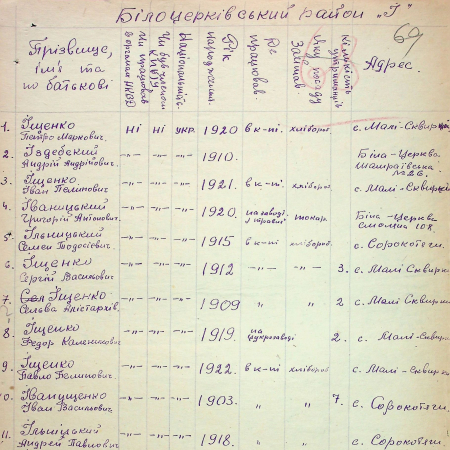 Білоцерківський район „І"
69
Прізвище,
ім'я та
по батькові
Чи працював
в органах НКВД
Чи був членом
Національність
Рік
народження
Де
працював.
Яку посаду
Займав
кількість
утриманців
Адрес.
1. Іщенко
Петро Маркович. Ні ні укр. 1920 в к-пі. хлібороб с. Малі-Сквирки
2. Іздебський
Андрій Андрійович. -"- -"- -"- 1910. Біла-Церква
№ 26.
3. Іщенко
Іван Пелипович -"- -"- -"- 1921. в к-пі. хлібороб с. Малі-Сквирки
4. Іваницький
Григорій Антонович. -"- -"- -"- 1920. токар. Біла-Церква
5. Ільницький
Семен Тодосієвич. -"- -"- -"- 1915 в к-пі хлібороб. с. Сорокотяги.
6. Іщенко
Сергій Васильович -"- -"- -"- 1912 -"- -"- 3. с. Малі Сквирки
7. Іщенко
-"- -"- -"- 1909 " " 2 с. Малі Сквирки
8. Іщенко
Федор Каленикович -"- -"- -"- 1919. на
2. с. Малі-Сквирки
9. Іщенко
Павло Пелипович -"- -"- -"- 1922. в к-пі хлібороб с. Малі-Сквирки
10.
Іван Васильович -"- -"- -"- 1903. " " 7. с. Сорокотяги.
11. Ільніцький
Андрей Павлович -"- -"- -"- 1918. " " с. Сорокотяги.